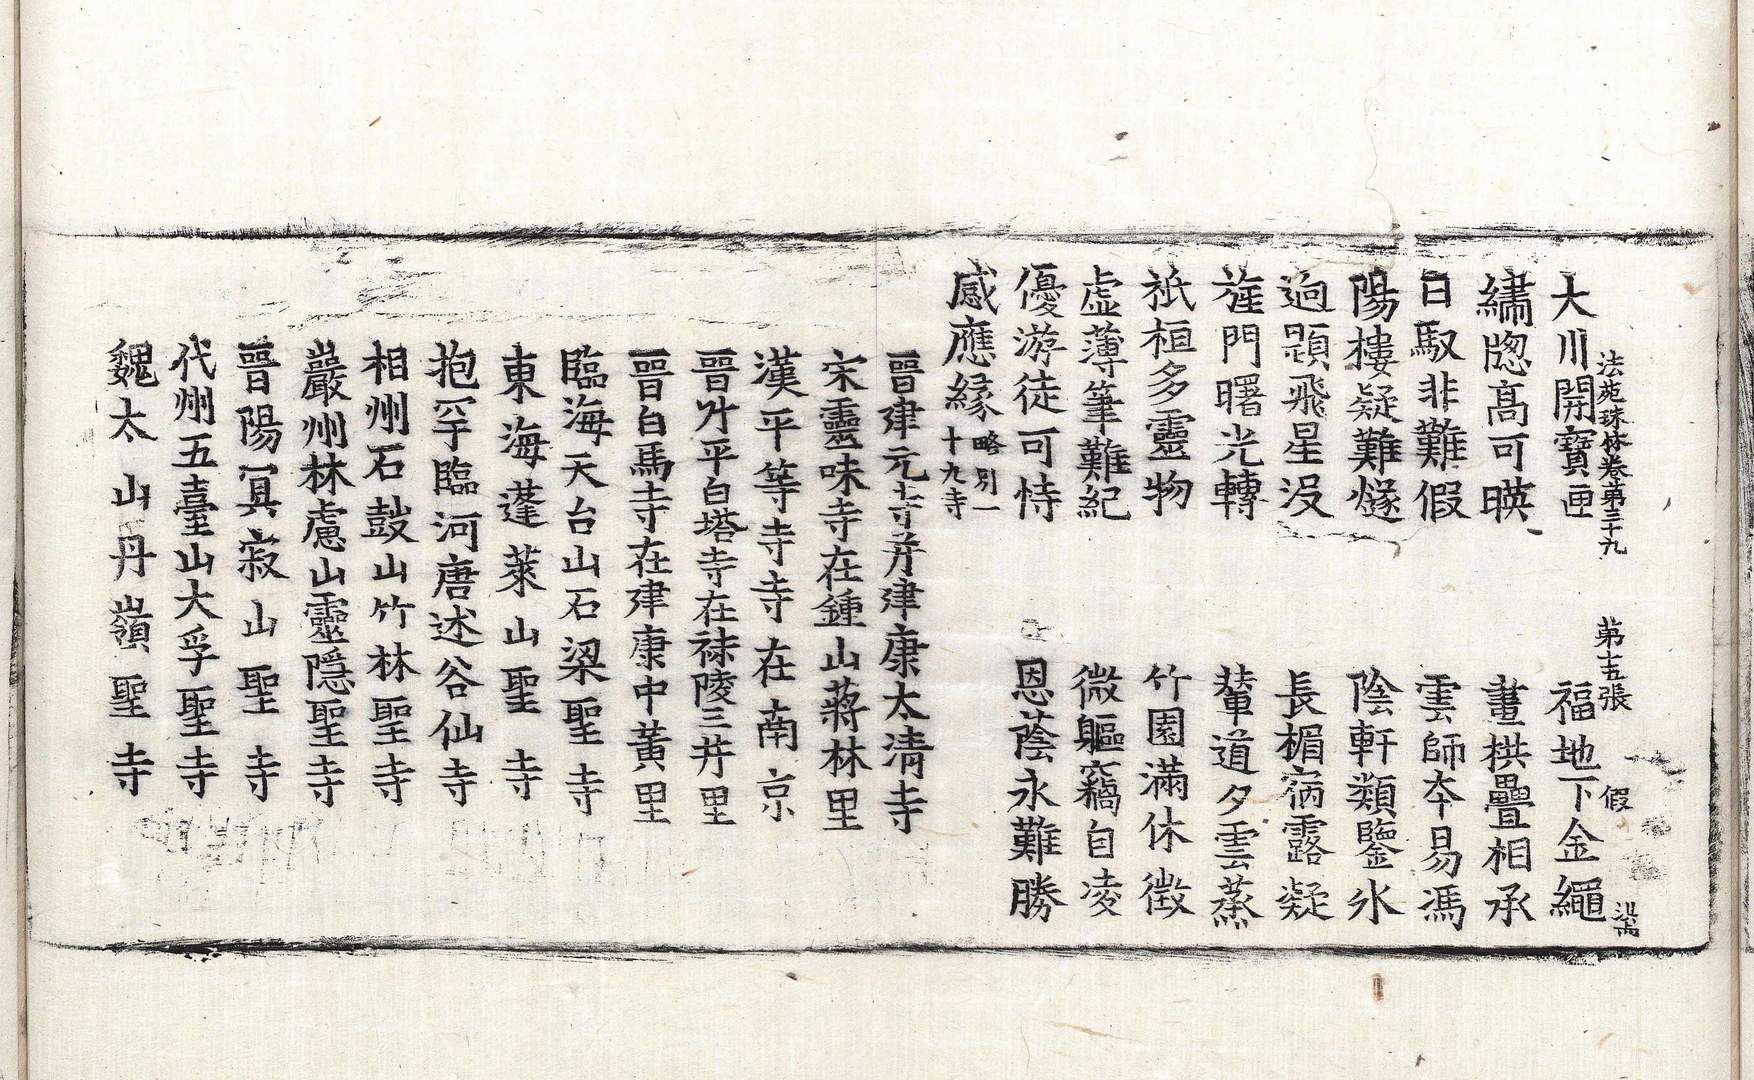 法苑珠林卷第三十九 第十五張 假
大川開寶匣 福地下金繩
繡牕髙可暎 畫栱疊相承
日馭非難假 雲師夲易馮
陽樓疑難燧 陰軒類鑒氷
逈題飛星没 長楣宿露凝
旌門曙光轉 輦道夕雲蒸
祇桓多靈物 竹園滿休徴
虚薄筆難紀 微軀竊自凌
優游徒可恃 恩蔭永難勝
感應縁略別一十九寺
晉建元寺并建康太清寺
宋靈味寺在鍾山蔣林里
漢平等寺寺在南京
晉升平白塔寺在秣陵三井里
晉白馬寺在建康中黄里
臨海天台山石梁聖寺
東海蓬萊山聖寺
抱罕臨河唐述谷仙寺
相州石鼓山竹林聖寺
巖州林慮山靈隱聖寺
晉陽冥寂山聖寺
代州五臺山大孚聖寺
魏太山丹嶺聖寺